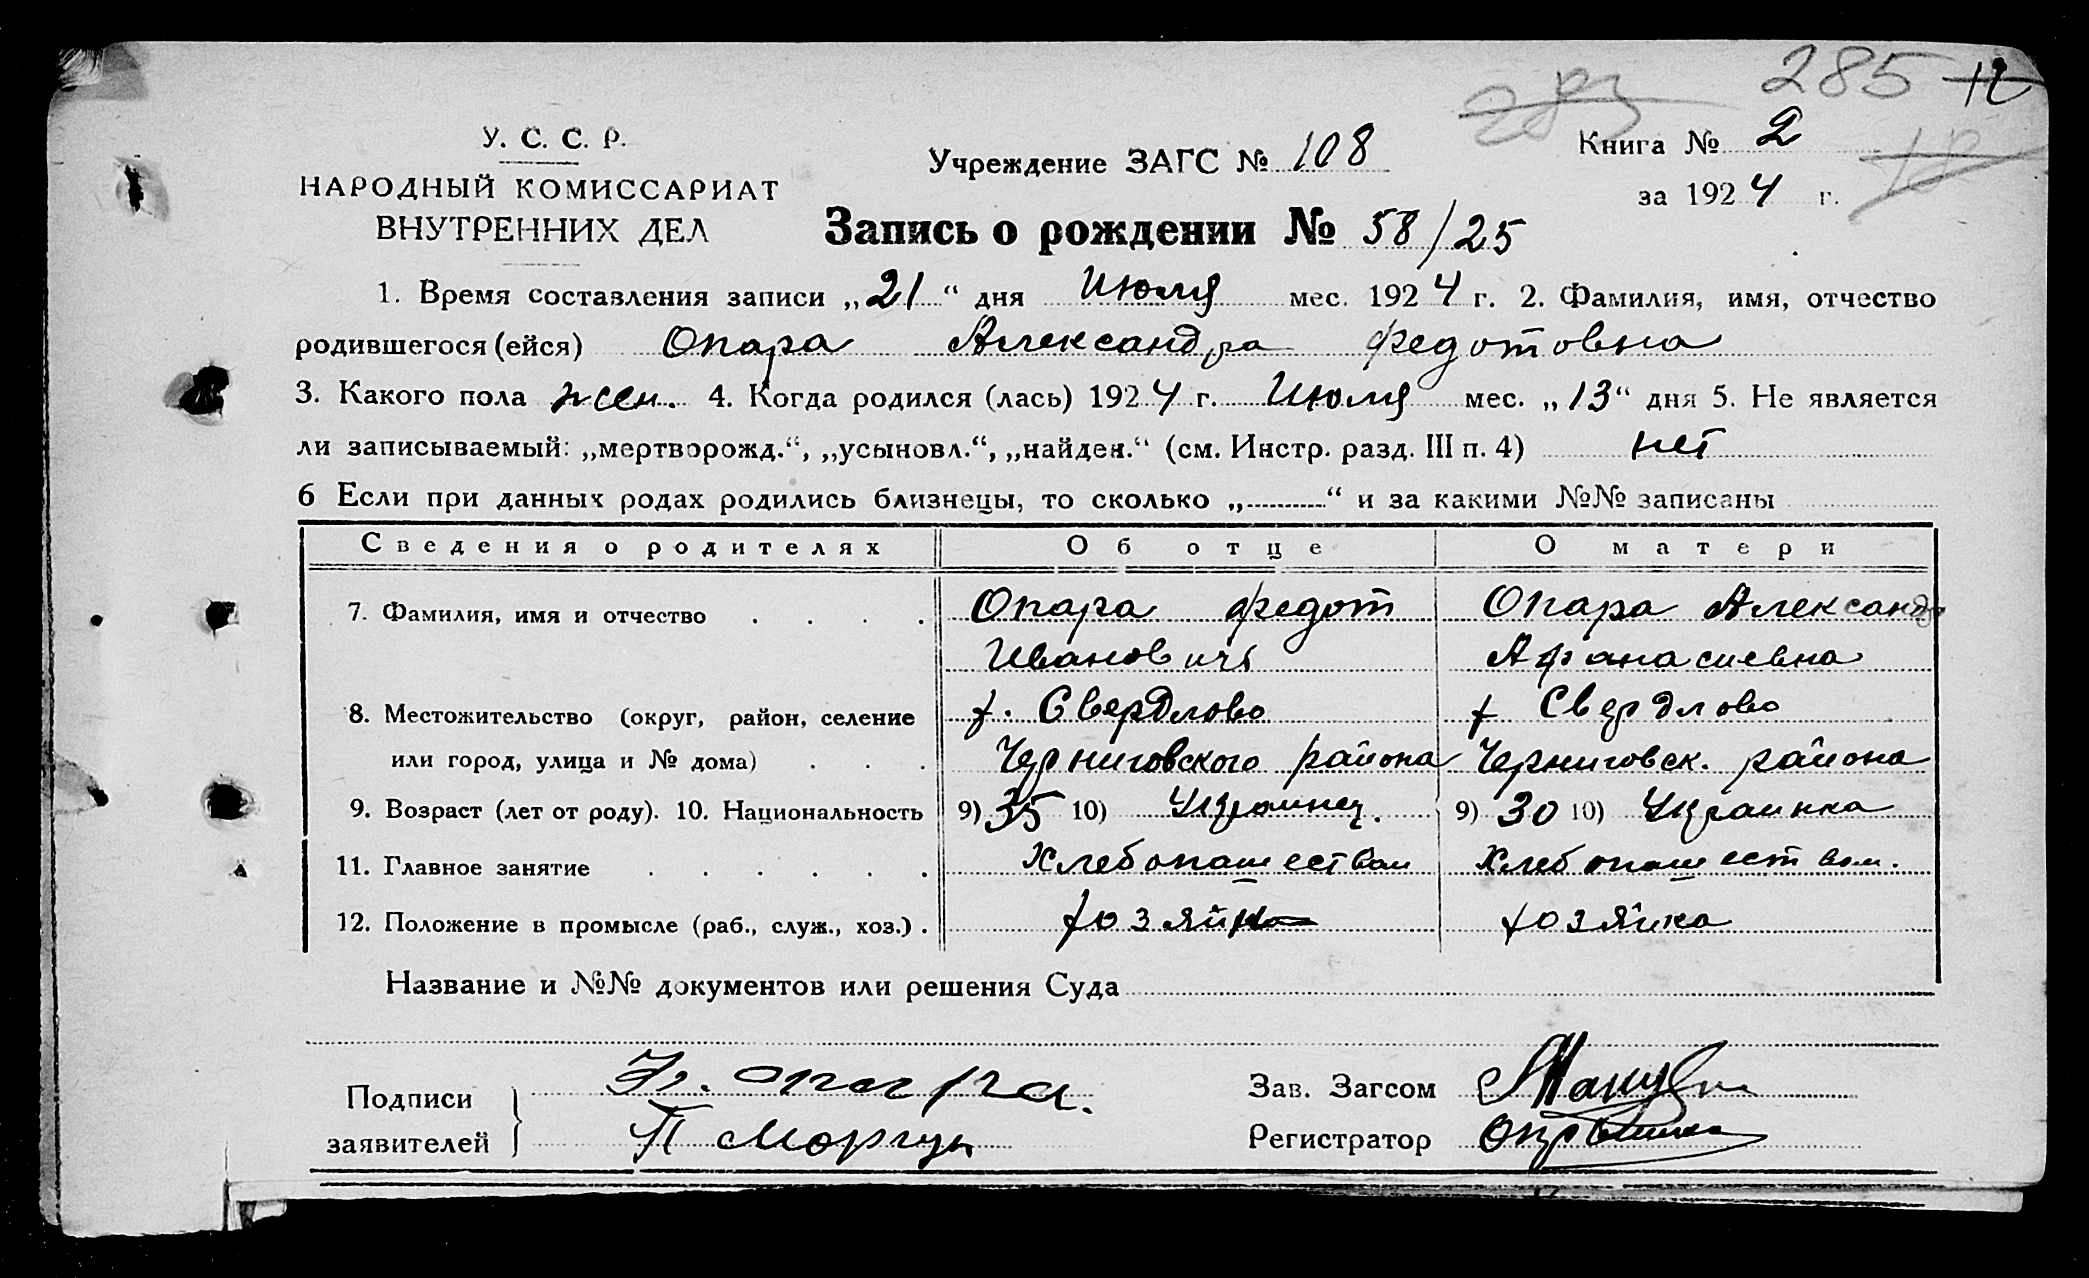 285 12
У. С. С. Р.
НАРОДНЫЙ КОМИССАРИАТ
ВНУТРЕННИХ ДЕЛ
Учреждение ЗАГС № 108
Книга № 2
за 1924 г.
Запись о рождении № 58/25
1. Время составления записи „21“ дня Июля мес. 1924 г. 2. Фамилия, имя, отчество
родившегося (ейся) Опара Александра Федотовна
3. Какого пола жен. 4. Когда родился (лась) 1924 г. Июля мес. „13“ дня 5. Не является
ли записываемый: „мертворожд.“, „усыновл.“, „найден.“ (см. Инстр. разд. III п. 4) нет
6 Если при данных родах родились близнецы, то сколько „..........“ и за какими №№ записаны
Сведения о родителях Об отце О матери
7. Фамилия, имя и отчество . . . . Опара Федот Опара Александра
Ивановичъ Афанасиевна
8. Местожительство (округ, район, селение х. Свердлово х Свердлово
или город, улица и № дома) . . . Черниговского района Черниговск. района
9. Возраст (лет от роду). 10. Национальность 9) 35 10) Украинец. 9) 30 10) Украинка
11. Главное занятие . . . . . . Хлебопашеством Хлебопашеством.
12. Положение в промысле (раб., служ., хоз.) . хозяин хозяйка
Название и №№ документов или решения Суда
Подписи
заявителей
Ф. Опара.
П Моргун
Зав. Загсом
Регистратор